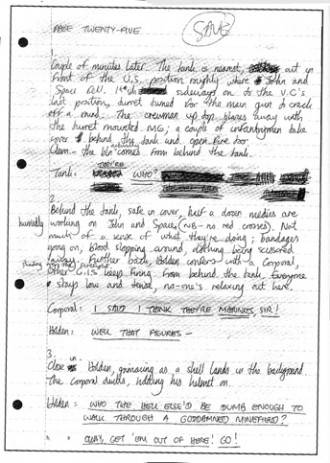 PAGE TWENTY-FIVE
SAVE
1.
Couple of minutes later. The tank is nearest, out up
front of the U.S. position roughly where John and
Space fell. It's sideways on to the V.C.'s
last position, turret turned for the main gun to crack
off a round. The crewman up top blazes away with
the turret mounted M.G.; a couple of infantrymen take
cover behind the tank and open fire too.
Cam - the comes from behind the tank.
THEY'RE
Tank: WHO?
2.
Behind the tank, safe in cover, half a dozen medics are
working on John and Space (NB - no red crosses). Not
hurriedly
much of a sense of what they're doing; bandages
going on, blood slopping around, clothing being scissored
away. Further back, Holden confers with a Corporal,
other G.I.s keep firing from behind the tank. Everyone
stays low and tense, no-one's relaxing out here.
Corporal: I SAID I THINK THEY'RE MARINES, SIR!
Holden: WELL THAT FIGURES -
3.
Close in on Holden, grimacing as a shell lands in the background.
The Corporal ducks, holding his helmet on.
Holden: WHO THE HELL ELSE'D BE DUMB ENOUGH TO
WALK THROUGH A GODDAMNED MINEFIELD?
" " GET 'EM OUT OF HERE! GO!